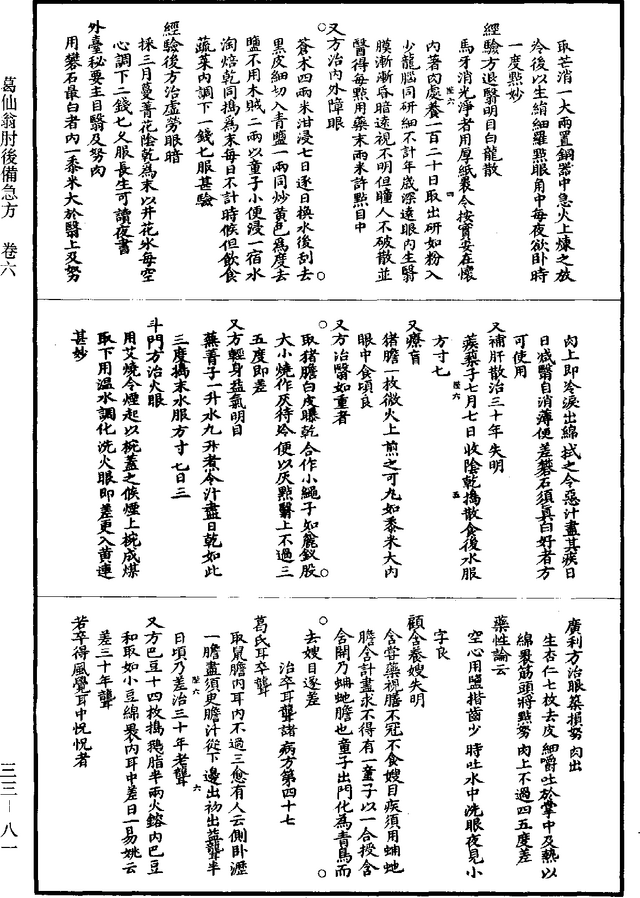 葛仙翁肘後備急方 卷六
取芒消一大兩置銅器中急火上煉之放
冷後以生絹細羅點眼角中每夜欲卧時
一度點妙
經驗方退翳明目白龍散
馬牙消光淨者用厚紙裹令按實安在懷
內著肉處養一百二十日取出研如粉入
少龍腦同研細不計年歲深遠眼內生翳
膜漸漸昏暗遠視不明但瞳人不破散並
醫得每點用藥末兩米許點目中
又方治內外障眼
蒼朮四兩米泔浸七日逐日換水後刮去
黑皮細切入青鹽一兩同炒黃色爲度去
鹽不用木賊二兩以童子小便浸一宿水
淘焙乾同搗爲末每日不計時候但飲食
蔬菜內調下一錢匕服甚驗
經驗後方治虛勞眼暗
採三月蔓菁花陰乾爲末以井花水每空
心調下二錢匕久服長生可讀夜書
外臺秘要主目翳及努肉
用礬石最白者內一黍米大於翳上及努
肉上即冷淚出綿拭之令惡汁盡其疾日
日減翳自消薄便差礬石須真白好者方
可使用
又補肝散治三十年失明
蒺藜子七月七日收陰乾搗散食後水服
方寸匕
又療盲
豬膽一枚微火上煎之可丸如黍米大內
眼中食頃良
又方治翳如重者
取猪膽白皮曝乾合作小繩子如麄釵股
大小燒作灰待冷便以灰點翳上不過三
五度即差
又方輕身益氣明目
蕪菁子一升水九升煮令汁盡日乾如此
三度搗末水服方寸匕日三
斗門方治火眼
用艾燒令煙起以椀蓋之候煙上椀成煤
取下用溫水調化洗火眼即差更入黃連
甚妙
廣利方治眼築損努肉出
生杏仁七枚去皮細嚼吐於掌中及熱以
綿裹筯頭將點努肉上不過四五度差
藥性論云
空心用鹽揩齒少時吐水中洗眼夜見小
字良
顧含養嫂失明
含嘗藥視膳不冠不食嫂目疾須用蚺虵
膽含計盡求不得有一童子以一合授含
含開乃蚺虵膽也童子出門化爲青鳥而
去嫂目遂差
治卒耳聾諸病方第四十七
葛氏耳卒聾
取鼠膽內耳內不過三愈有人云側卧瀝
一膽盡須更膽汁從下邊出初出益聾半
日頃乃差治三十年老聾
又方巴豆十四枚搗鵝脂半兩火鎔內巴豆
和取如小豆綿裹內耳中差日一易姚云
差三十年聾
若卒得風覺耳中怳怳者
三三－八一